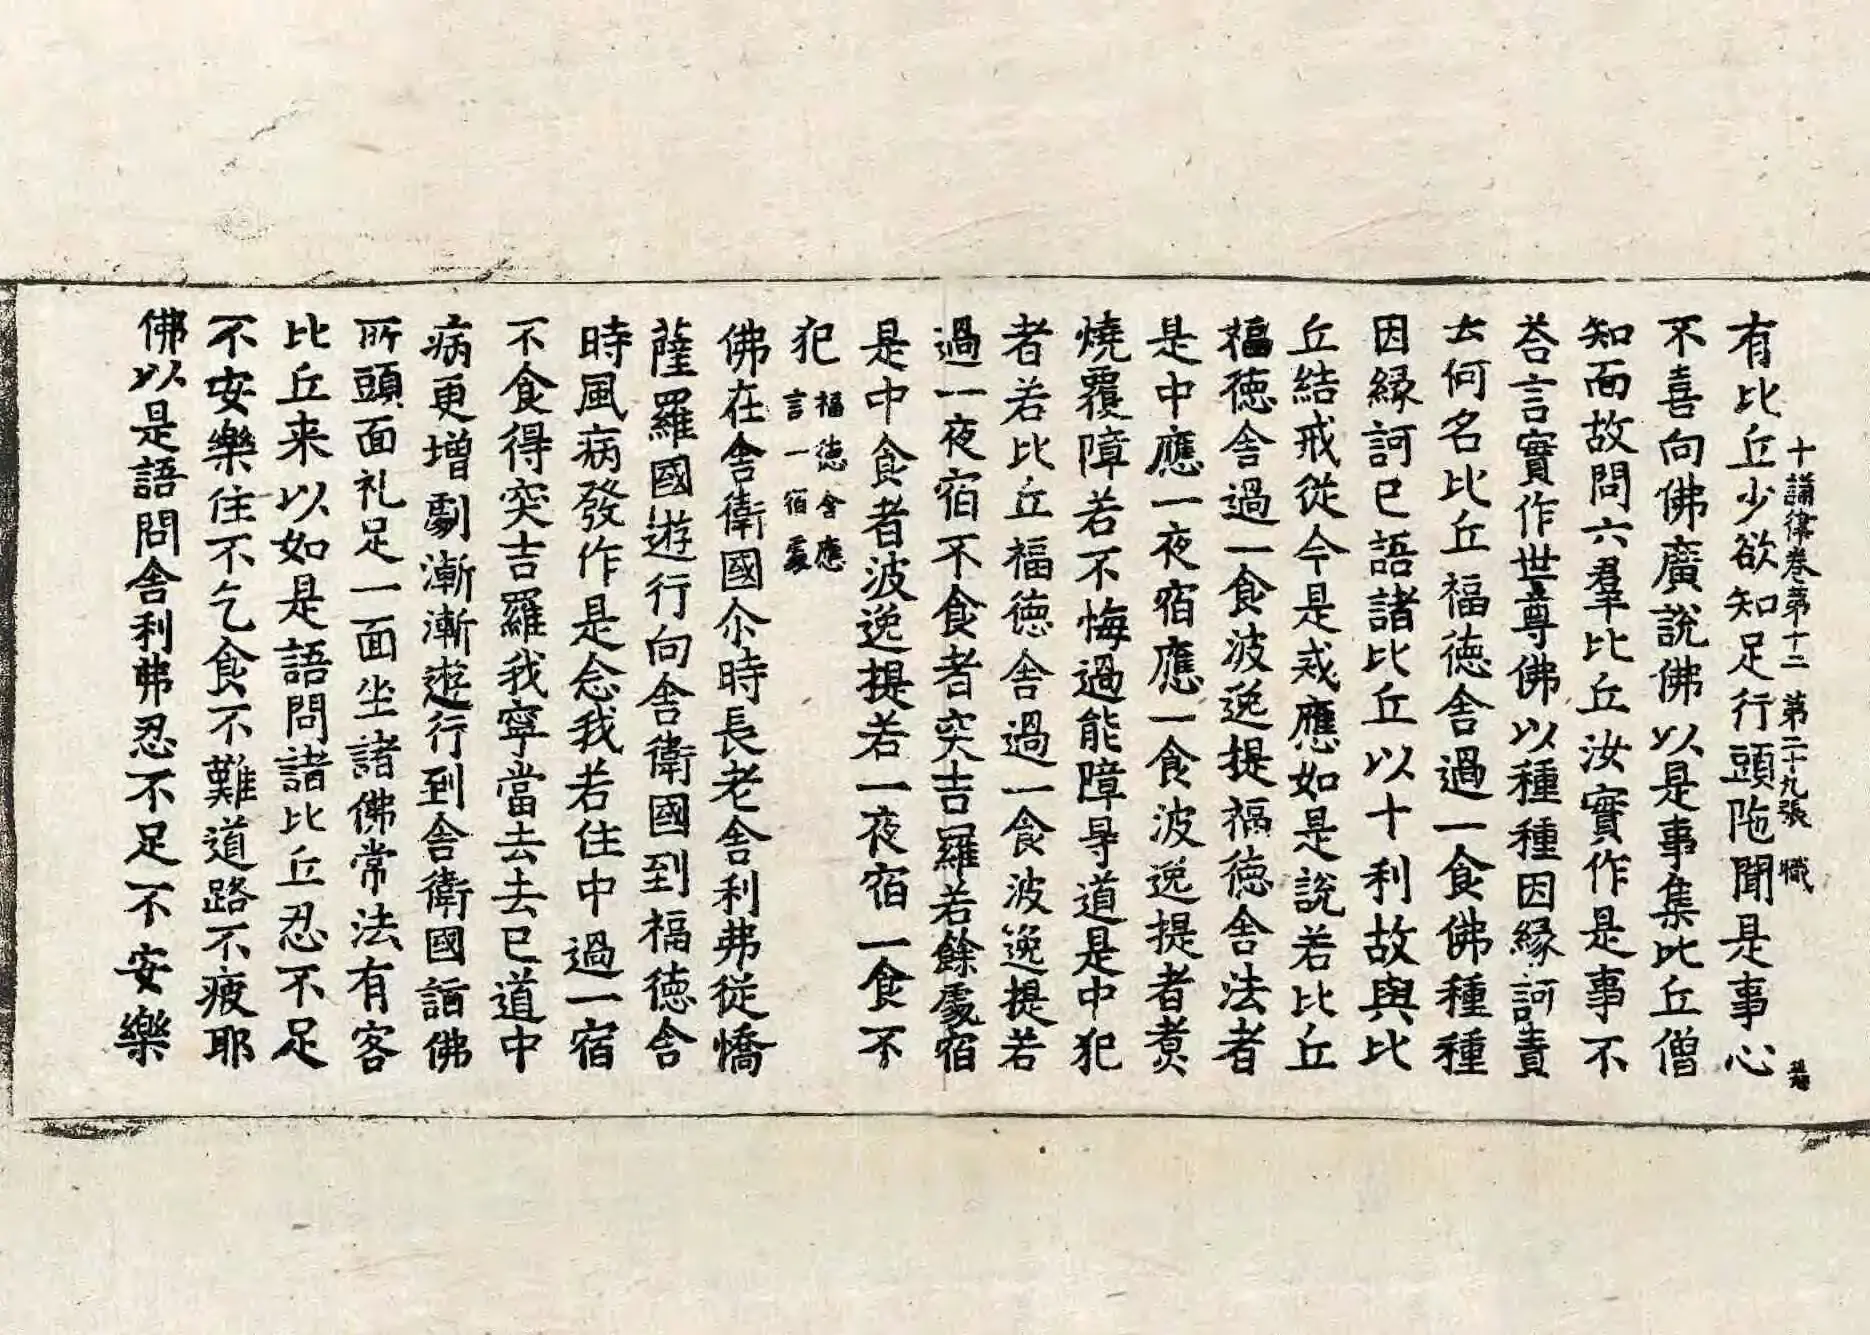 十誦律卷第十二 第二十九張 職
有比丘少欲知足行頭陁聞是事心
不喜向佛廣說佛以是事集比丘僧
知而故問六羣比丘汝實作是事不
荅言實作世尊佛以種種因緣訶責
云何名比丘福德舍過一食佛種種
因緣訶已語諸比丘以十利故與比
丘結戒從今是戒應如是說若比丘
福德舍過一食波逸提福德舍法者
是中應一夜宿應一食波逸提者煑
燒覆障若不悔過能障㝵道是中犯
者若比丘福德舍過一食波逸提若
過一夜宿不食者突吉羅若餘處宿
是中食者波逸提若一夜宿一食不
犯 福德舍應
言一宿處
佛在舍衛國尒時長老舍利弗從憍
薩羅國遊行向舍衛國到福德舍
時風病發作是念我若住中過一宿
不食得突吉羅我寧當去去已道中
病更增劇漸漸遊行到舍衛國詣佛
所頭面礼足一面坐諸佛常法有客
比丘来以如是語問諸比丘忍不足
不安樂住不乞食不難道路不疲耶
佛以是語問舍利弗忍不足不安樂